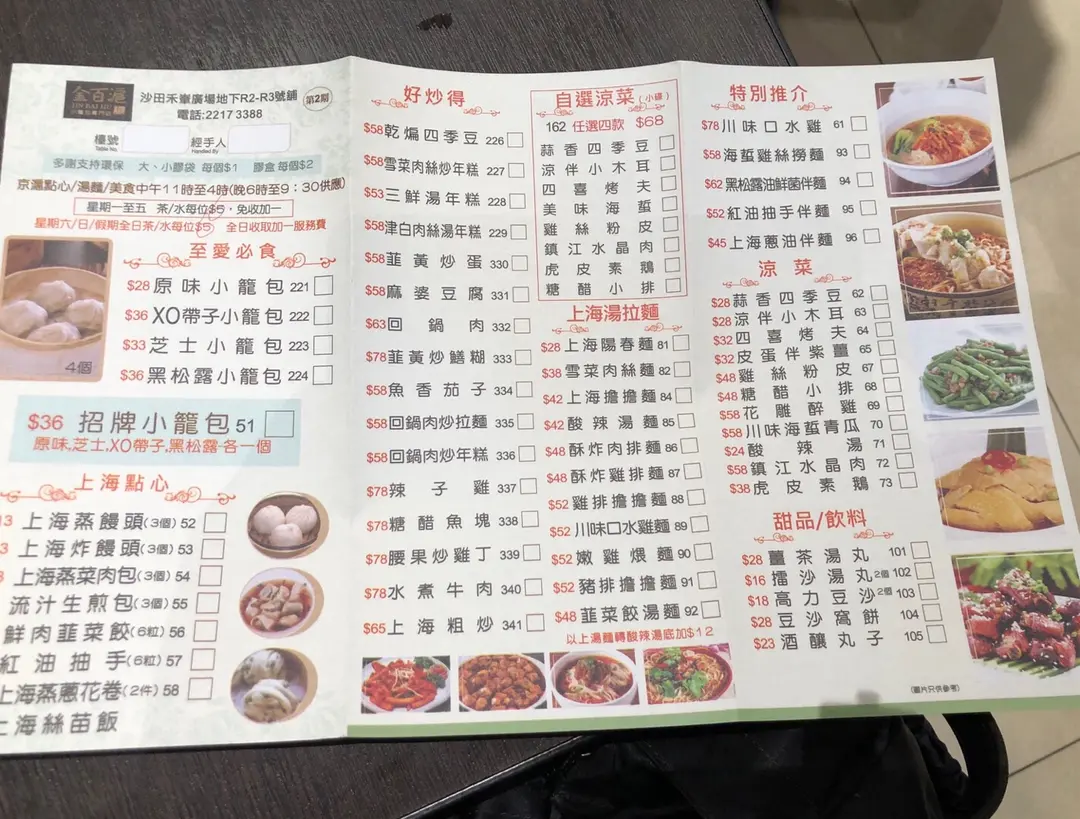 金百滬
沙田禾輋廣場地下R2-R3號舖
第2期
電話:2217 3388
檯號
Table No.
經手人
Handed By
多謝支持環保 大、小膠袋 每個$1 膠盒 每個$2
京滬點心/湯麵/美食中午11時至4時(晚6時至9:30供應)
星期一至五 茶/水每位$5,免收加一
星期六/日/假期全日茶/水每位$5 全日收取加一服務費
至愛必食
$28 原味小籠包 221
$36 XO帶子小籠包 222
$33 芝士小籠包 223
$36 黑松露小籠包 224
4個
$36 招牌小籠包 51
原味,芝士,XO帶子,黑松露-各一個
上海點心
上海蒸饅頭(3個) 52
上海炸饅頭(3個) 53
上海蒸菜肉包(3個) 54
流汁生煎包(3個) 55
鮮肉韮菜餃(6粒) 56
紅油抽手(6粒) 57
上海蒸蔥花卷(2件) 58
上海絲苗飯
好炒得
$58 乾煸四季豆 226
$58 雪菜肉絲炒年糕 227
$53 三鮮湯年糕 228
$58 津白肉絲湯年糕 229
$58 韮黃炒蛋 330
$58 麻婆豆腐 331
$63 回鍋肉 332
$78 韮黃炒鱔糊 333
$58 魚香茄子 334
$58 回鍋肉炒拉麵 335
$58 回鍋肉炒年糕 336
$78 辣子雞 337
$78 糖醋魚塊 338
$78 腰果炒雞丁 339
$78 水煮牛肉 340
$65 上海粗炒 341
自選涼菜(小碟)
162 任選四款 $68
蒜香四季豆
涼伴小木耳
四喜烤夫
美味海蜇
雞絲粉皮
鎮江水晶肉
虎皮素鵝
糖醋小排
上海湯拉麵
$28 上海陽春麵 81
$38 雪菜肉絲麵 82
$42 上海擔擔麵 84
$42 酸辣湯麵 85
$48 酥炸肉排麵 86
$48 酥炸雞排麵 87
$52 雞排擔擔麵 88
$52 川味口水雞麵 89
$52 嫩雞煨麵 90
$52 豬排擔擔麵 91
$48 韮菜餃湯麵 92
以上湯麵轉酸辣湯底加$12
特別推介
$78 川味口水雞 61
$58 海蜇雞絲撈麵 93
$62 黑松露油鮮菌伴麵 94
$52 紅油抽手伴麵 95
$45 上海蔥油伴麵 96
涼菜
$28 蒜香四季豆 62
$28 涼伴小木耳 63
$32 四喜烤夫 64
$32 皮蛋伴紫薑 65
$48 雞絲粉皮 67
$48 糖醋小排 68
$58 花雕醉雞 69
$58 川味海蜇青瓜 70
$24 酸辣湯 71
$58 鎮江水晶肉 72
$38 虎皮素鵝 73
甜品/飲料
$28 薑茶湯丸 101
$16 擂沙湯丸 2個 102
$18 高力豆沙 2個 103
$28 豆沙窩餅 104
$23 酒釀丸子 105
(圖片只供參考)